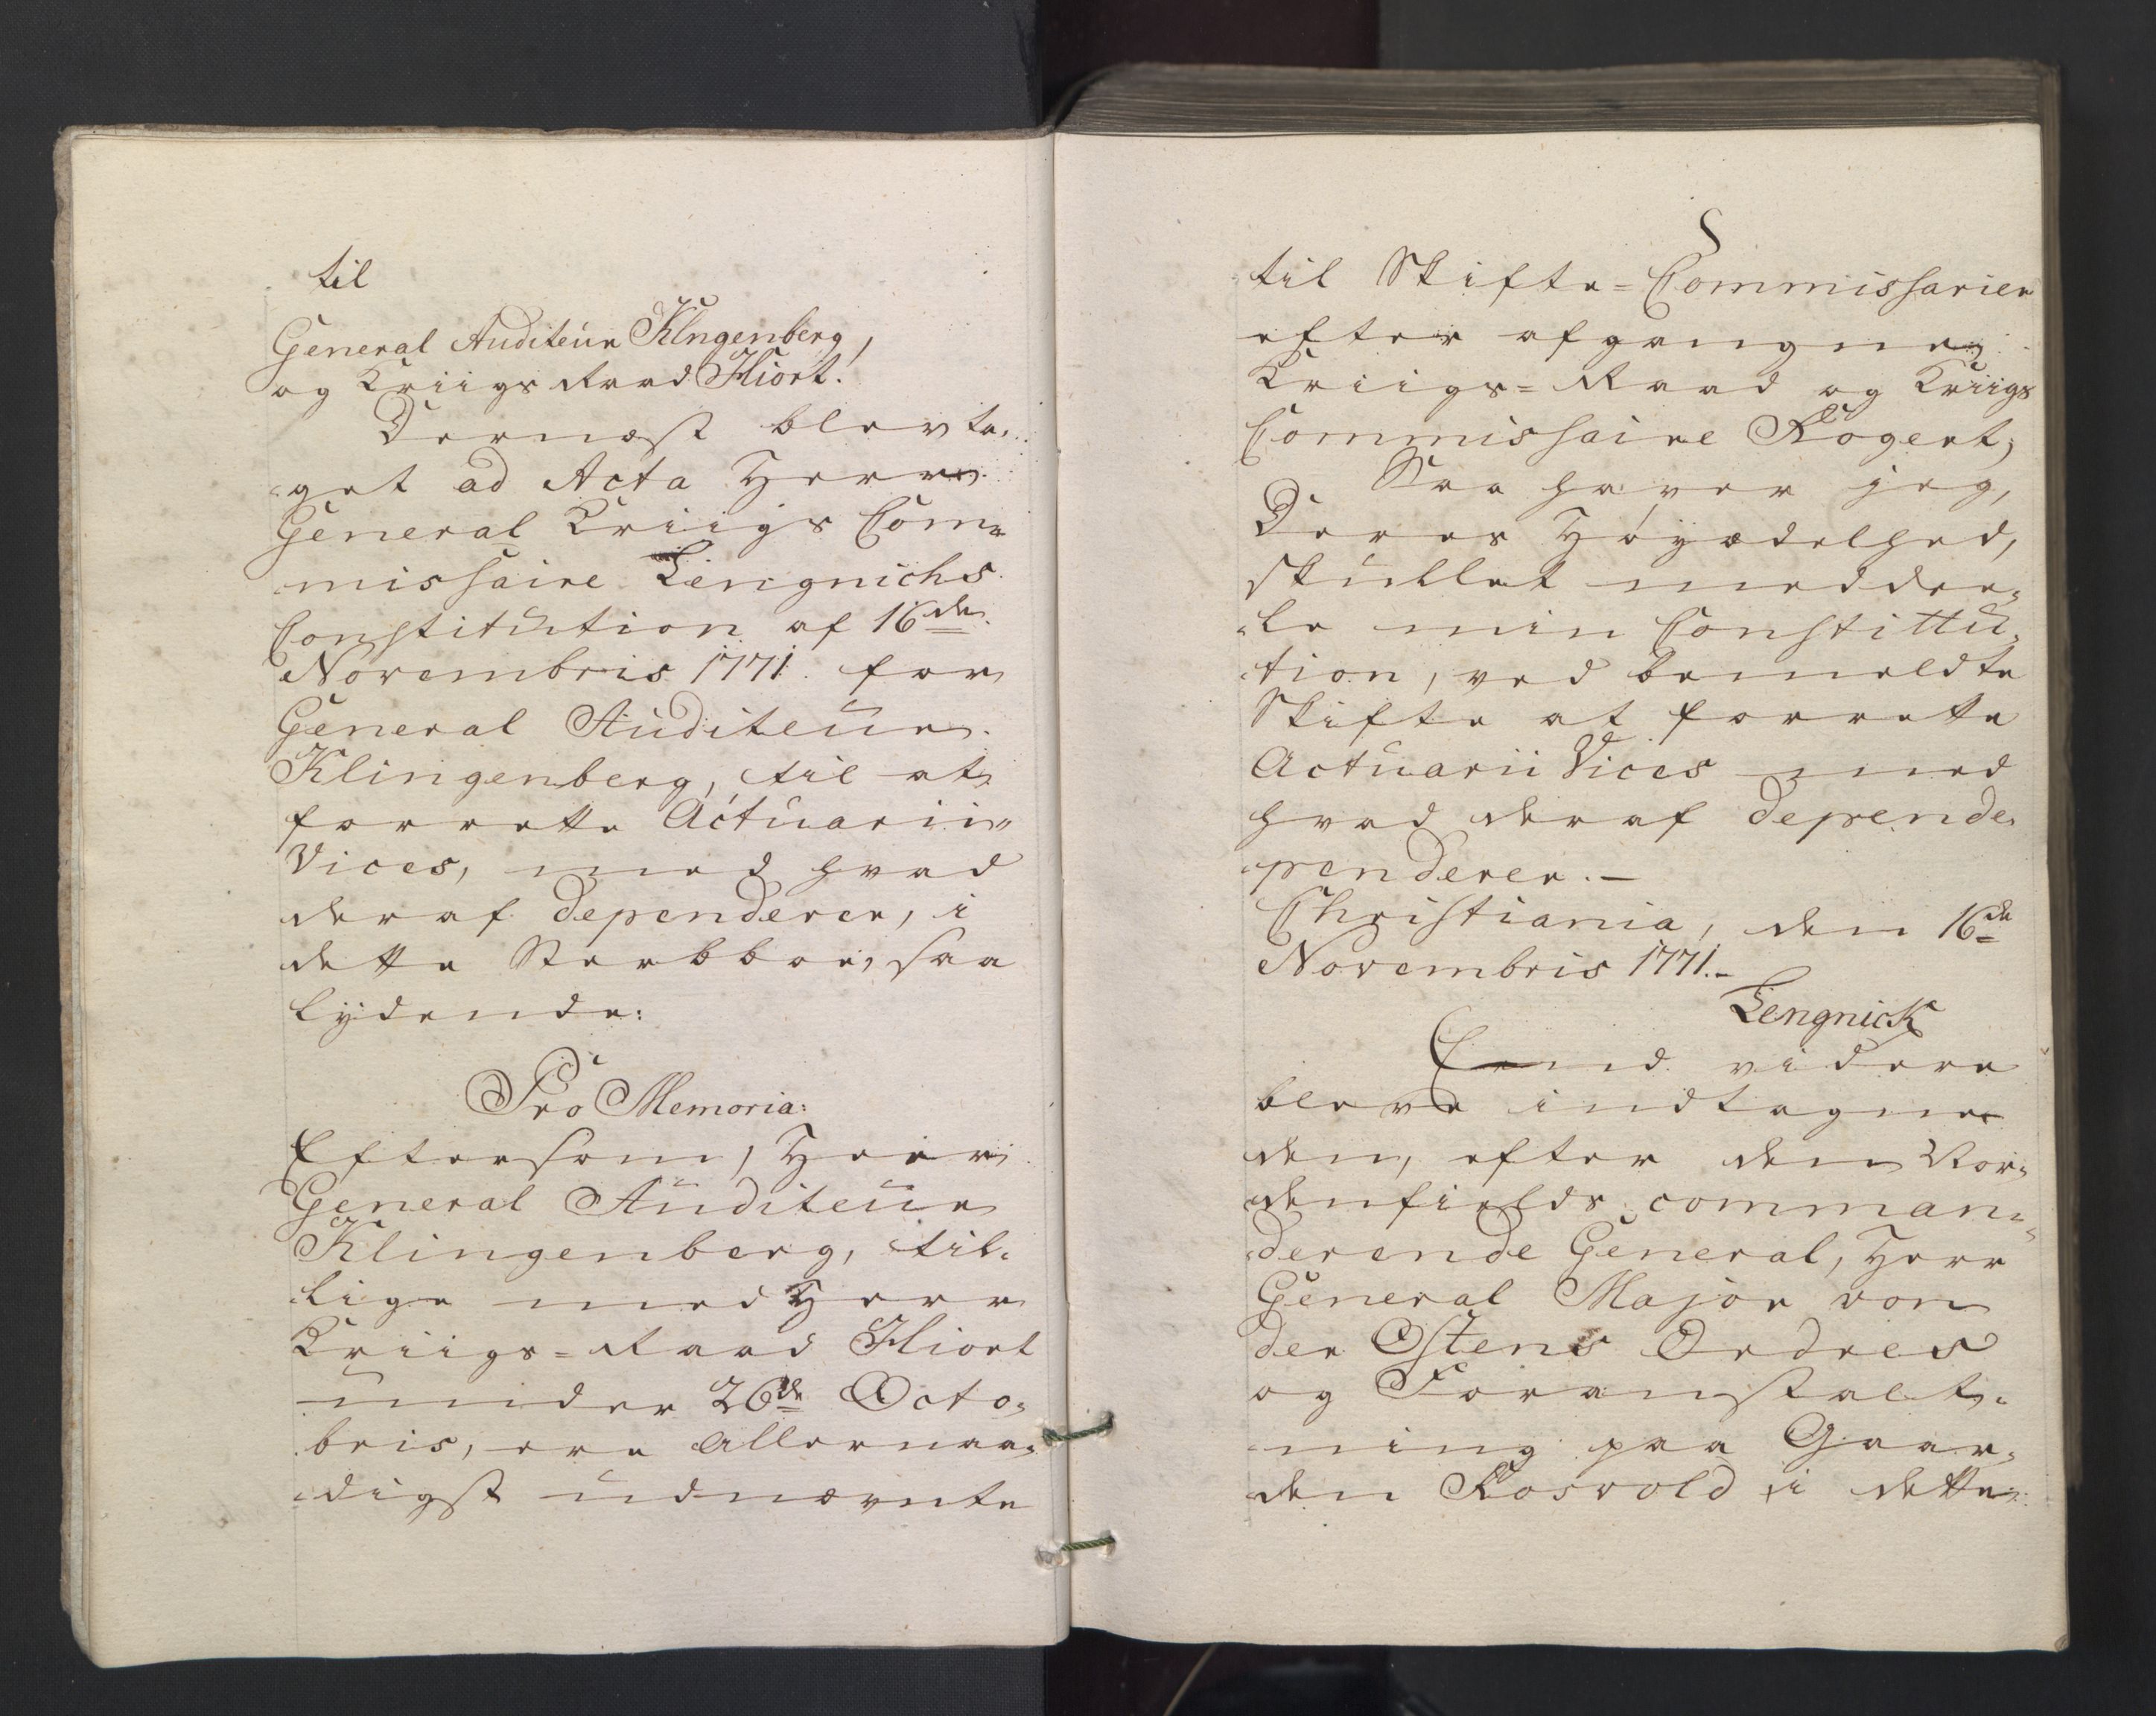 til
General Auditeur Klngenberg,
og Kriigs Raad Hiort.
Dernæst blev ta-
-get ad Acta Herr
General Kriigs Com-
missaire Lengnichs
Constitution af 16de
Novembris 1771. for
General Auditeur
Klingenberg, til at
forrette Actuarii
Vices, med hvad
deraf dependerer, i
dette Sterbboe, saa
lÿdende:
Pro Memoria:
Eftersom, Herr
General Auditeur
Klingenberg, til-
lige med Herr
Kriigs=Raad Hiort
under 26de Octo-
bris, ere Allernaa-
digst udnævnte
5
til Skifte=Commissarier
efter afgangne
Kriigs=Raad og Kriigs
Commissaire Rogert;
Saa haver jeg,
Deres Höÿædelhed,
skullet meddee-
-le min Constittu-
tion, ved bemeldte
Skifte at forrette
Actuarii Vices med
hvad deraf depende-
penderer.—
Christiania, den 16de
Novembris 1771.-
Lengnick
End videre
bleve indtagne
den, efter den Nor-
denfields comman-
derende General, Herr
General Major von
der Ostens Ordres
og Foranstalt-
ning paa Gaar-
den Rosvold i dette